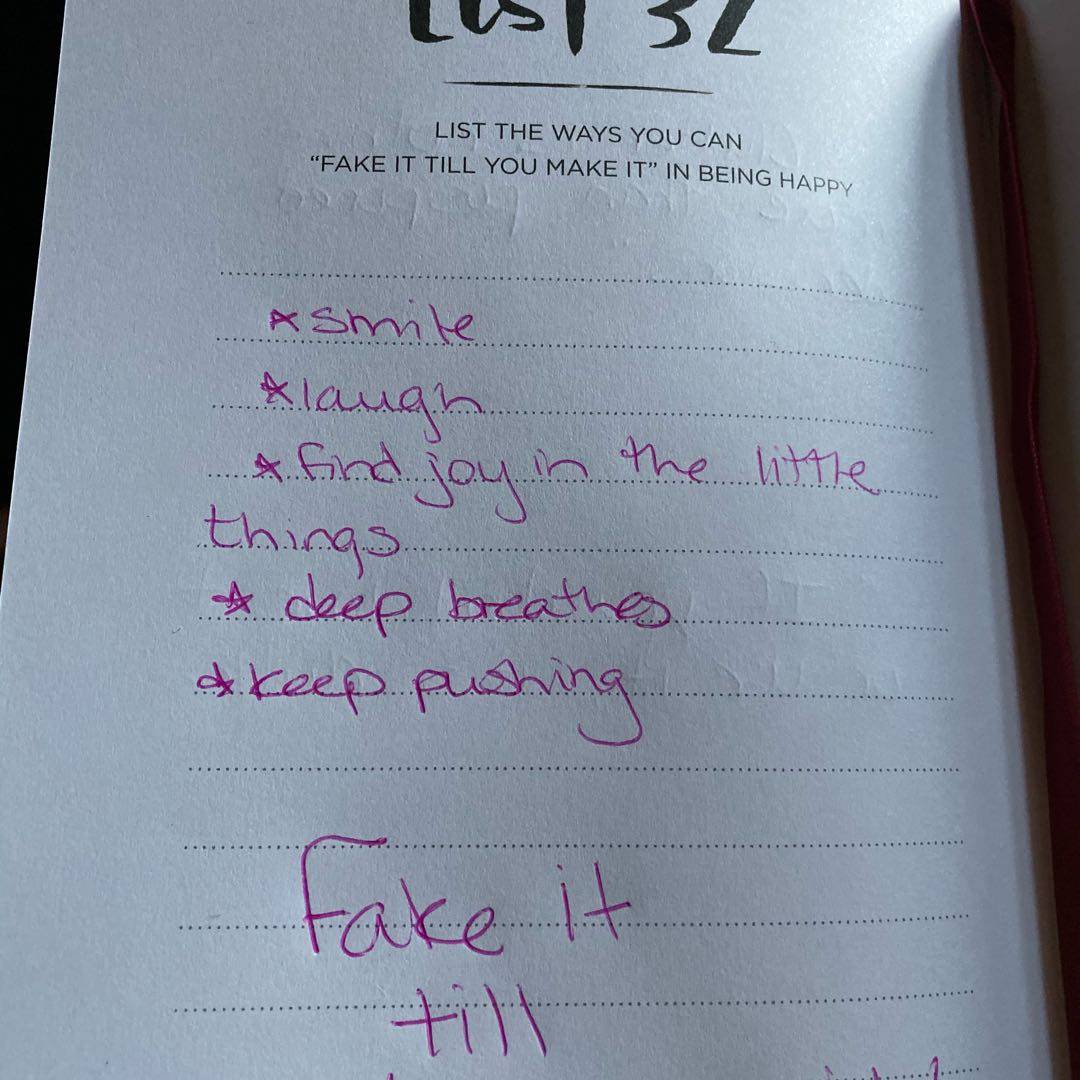 List 32
LIST THE WAYS YOU CAN
“FAKE IT TILL YOU MAKE IT” IN BEING HAPPY
*smile
*laugh
*find joy in the little
things
* deep breathes
*keep pushing
Fake it
till